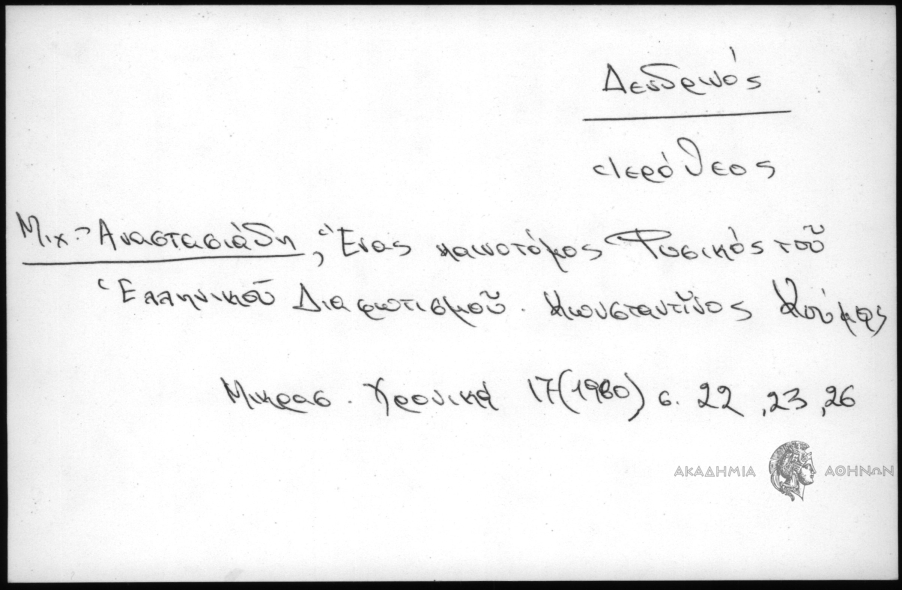 Δενδρινός
Ἱερόθεος
Μιχ. Ἀναστασιάδη, Ἕνας καινοτόμος Φυσικός τοῦ
Ἑλληνικοῦ Διαφωτισμοῦ. Κωνσταντῖνος Κούμας
Μικρασ. Χρονικά 17(1980) σ. 22, 23, 26
ΑΚΑΔΗΜΙΑ ΑΘΗΝΩΝ